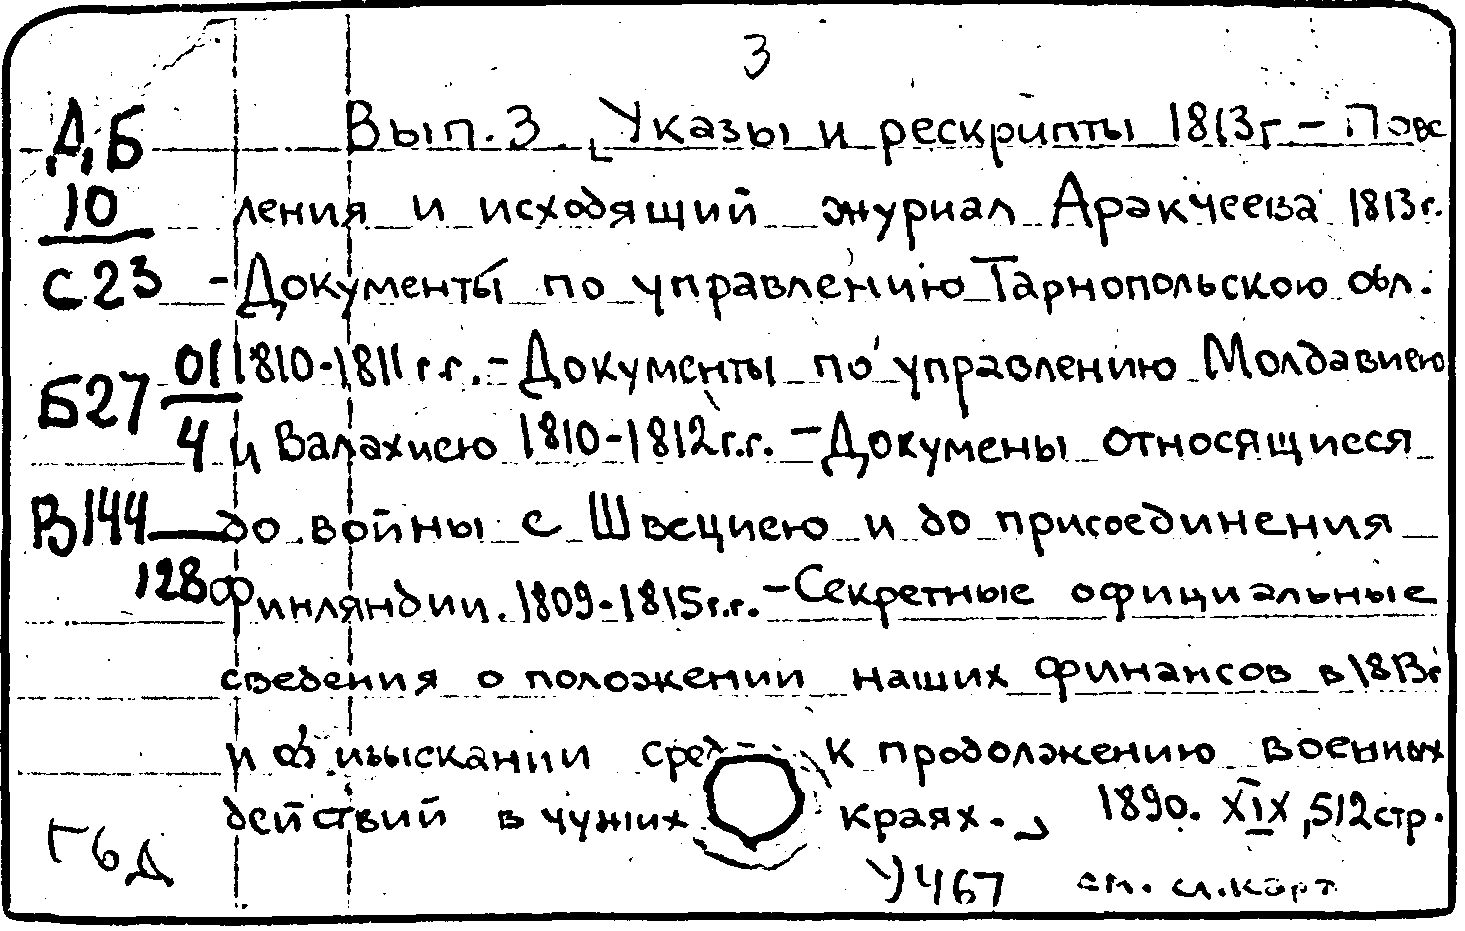 3
Д.Б Вып. 3. Указы и рескрипты 1813г. - Пове
10 ления и исходящий журнал Аракчеева 1813г.
С23 - Документы по управлению Тарнопольскою обл.
01 1810-1811 г.г. - Документы по управлению Молдавиею
Б27
4 и Валахиею 1810-1812г.г. - Докумены относящиеся
В144 до войны с Швециею и до присоединения
128 Финляндии. 1809-1815г.г. - Секретные официальные
сведения о положении наших финансов в 1813г
и об изыскании сред к продолжению военных
действий в чужих краях. 1890. XIX, 512 стр.
Гбд
У467 см. сл. карт